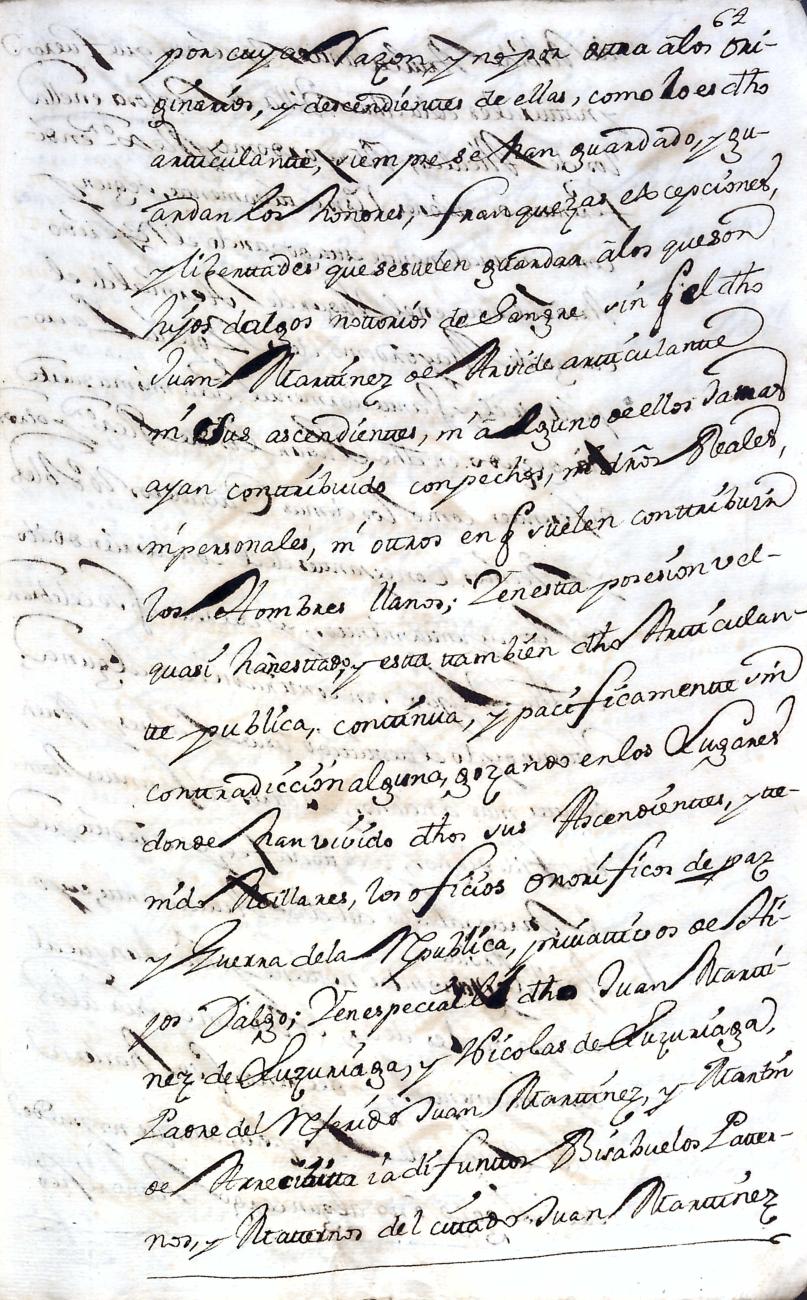 62
por cuya Razon, y no por ottra â los ôri-
ginarios, y descendienttes de ellas, como lo es dho
artticulantte, siempre se han guardado, y gu-
ardan los honores, franquezas, exsepciones,
y liberttades que se suelen guardar â los que son
hijos dalgos nottorios de Sangre sin q el dho
Juan Marttinez de Arvide artticulantte
ni sus ascendienttes, ni a alguno de ellos Jamas
ayan conttribuido con pechos, ni dros Reales,
ni personales, ni ottros en q suelen conttribuir
los Hombres llanos; Y en estta posesion vel-
quasi, han esttado, y estta ttambien dho Artticulan-
tte publica, conttinua, y pacificamentte sin
conttradiccion alguna, gozando en los Lugares
donde han vivido dhos sus Ascendienttes, y tte-
nido Millares, los oficios onorificos de paz
y Guerra de la Republica, privattivos de Hi-
jos Dalgo; Y en especial dho Juan Martti-
nez de Luzuriaga, y Nicolas de Luzuriaga,
Padre del Referido Juan Marttinez, y Marttin
de Arrecibitta ia difunttos Bisabuelos Patter-
nos, y Matternos del cittado Juan Marttinez